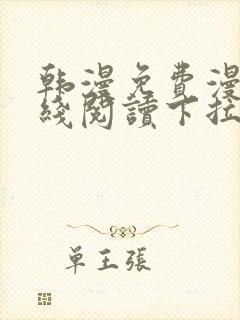 韩漫免费漫
线阅读下拉
单王张